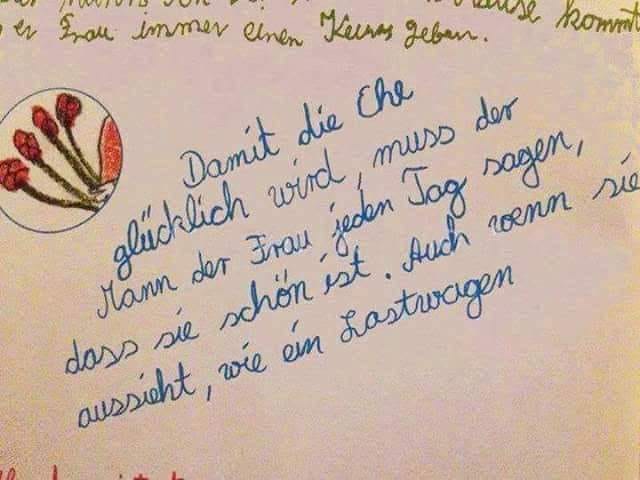 er Frau immer einen Kuss geben.
Damit die Ehe
glücklich wird, muss der
Mann der Frau jeden Tag sagen,
dass sie schön ist. Auch wenn sie
aussieht, wie ein Lastwagen